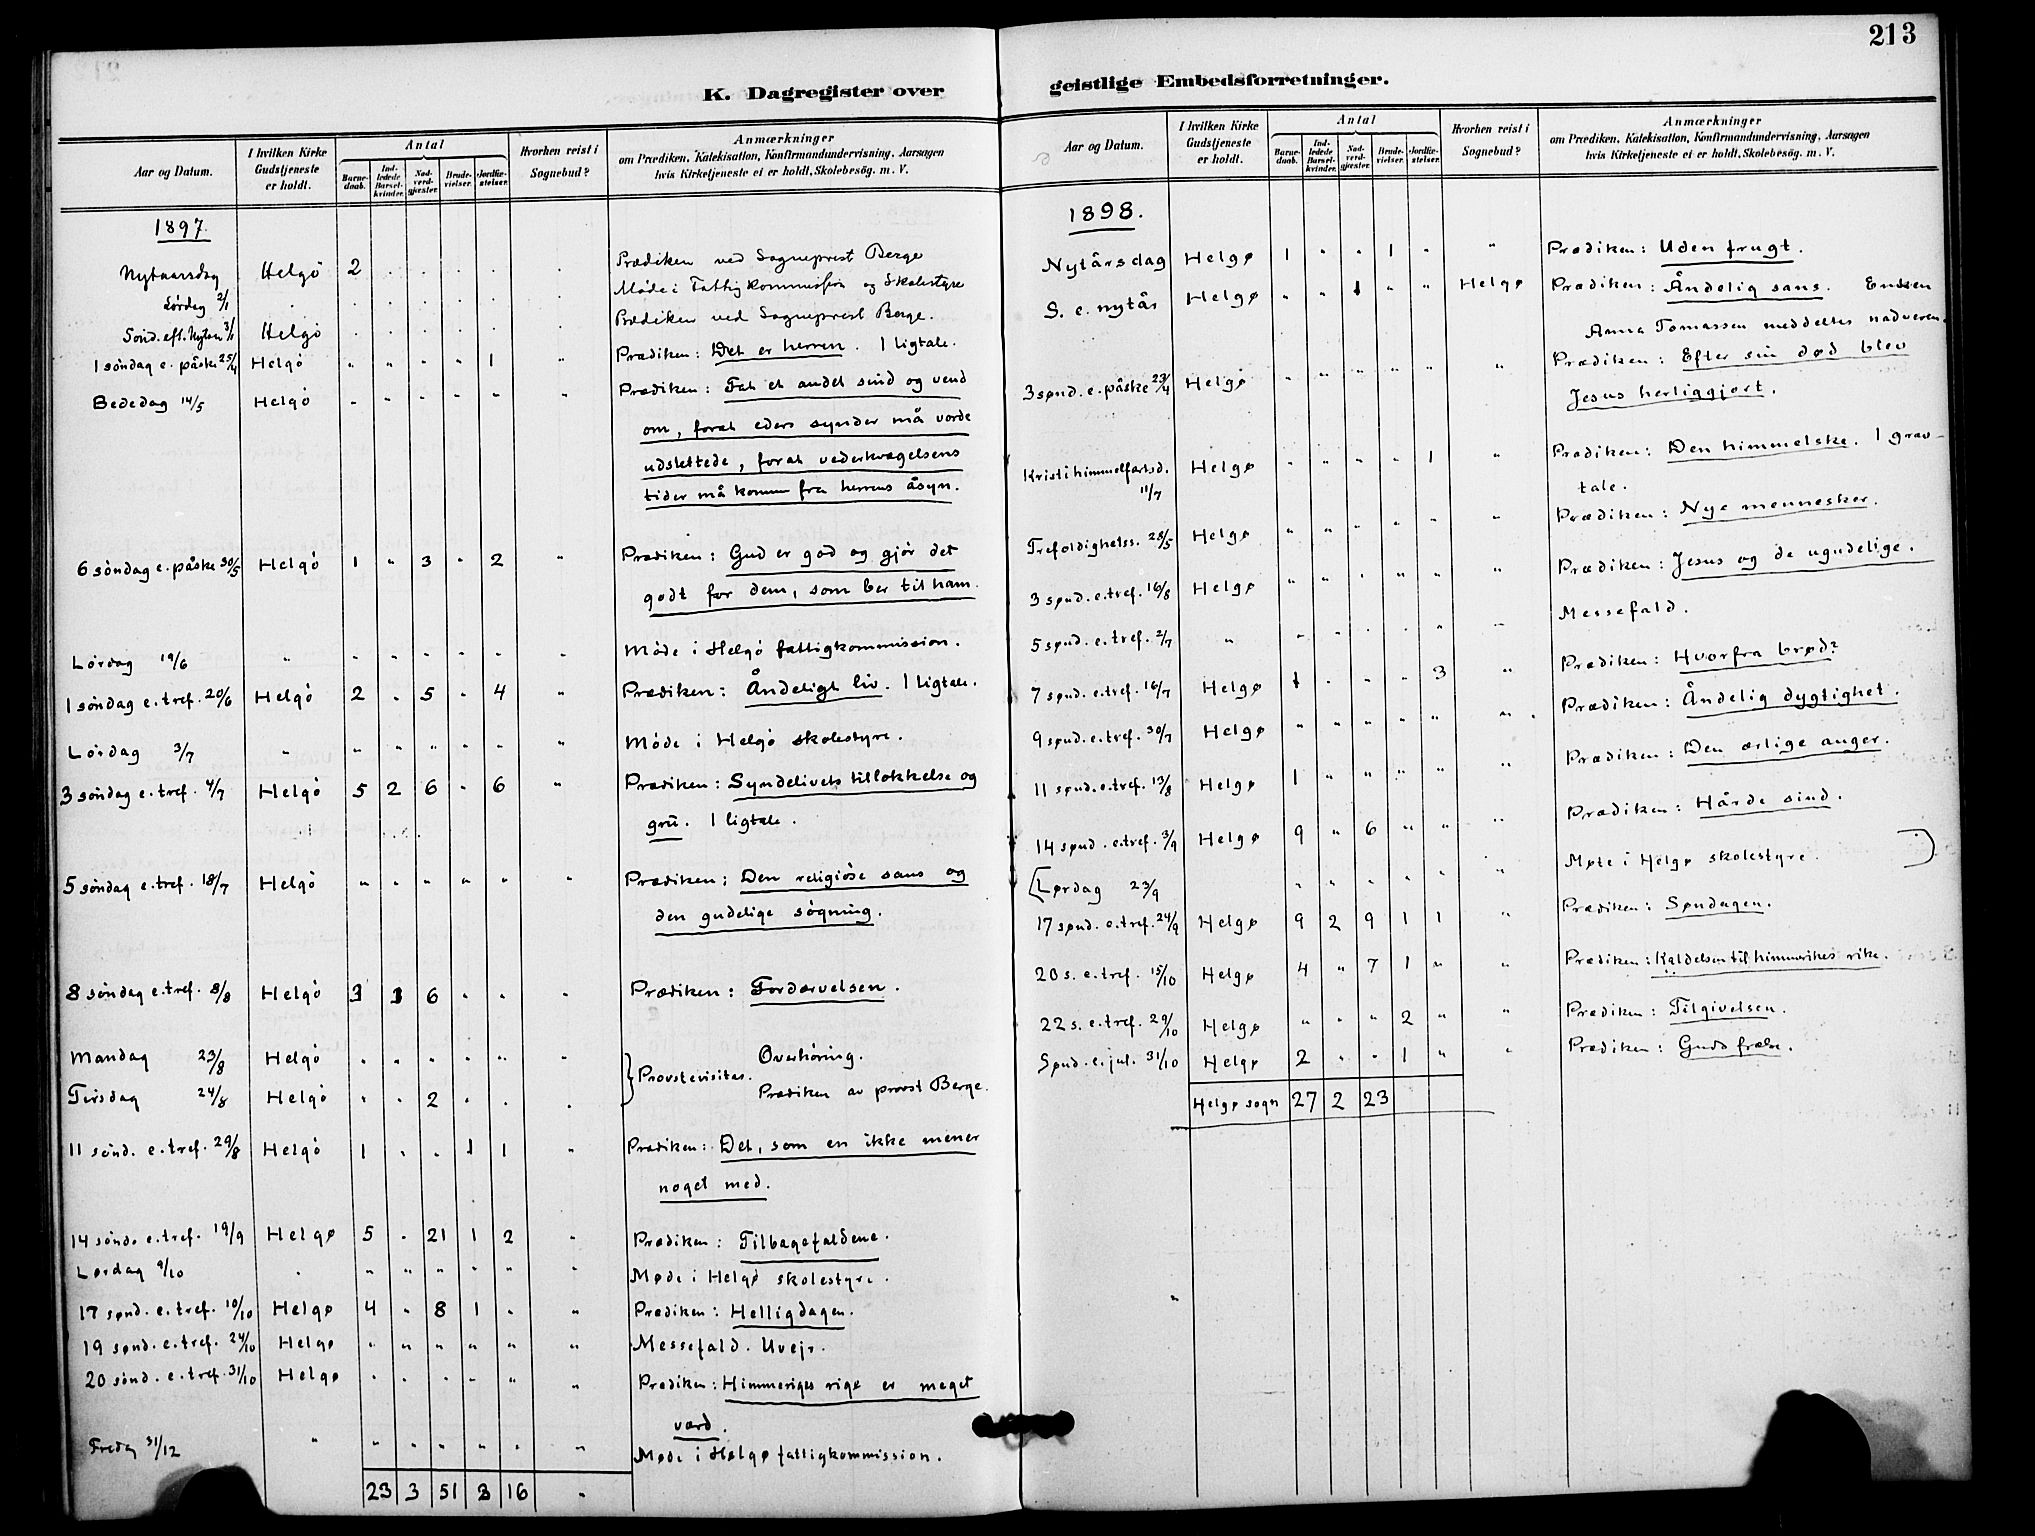 213
K. Dagregister over geistlige Embedsforretninger.
Aar og Datum.
I hvilken Kirke Gudstjeneste er holdt.
Antal
Barnedaab.
Indledede Barselkvinder.
Nadverdgjæster.
Brudevielser.
Jordfæstelser.
Hvorhen reist i Sognebud?
Anmærkninger
om Prædiken, Katekisation, Konfirmandundervisning, Aarsagen
hvis Kirketjeneste ei er holdt, Skolebesøg. m. V.
1897.
Nytaarsdag Helgö 2 Prædiken ved Sogneprest Berge
Lördag 2/1 Möde i Fattigkommission og Skolestyre
Sönd. eft. Nytaar 3/1 Helgö Prædiken ved Sogneprest Berge.
1 söndag e. påske 25/4 Helgö " " " " 1 " Prædiken: Det er herren. 1 ligtale.
Bededag 14/5 Helgö " " " " " " Prædiken: Fat et andet sind og vend
om, forat eders synder må vorde
udslettede, forat vederkvægelsens
tider må komme fra herrens åsyn.
6 söndag e. påske 30/5 Helgö 1 " 3 " 2 " Prædiken: Gud er god og gjör det
godt for dem, som ber til ham.
Lördag 19/6 " " " " " " " Möde i Helgö fattigkommission.
1 söndag e. tref. 20/6 Helgö 2 " 5 " 4 " Prædiken: Åndeligt liv. 1 ligtale.
Lördag 3/7 " " " " " " " Möde i Helgö skolestyre.
3 söndag e. tref. 4/7 Helgö 5 2 6 " 6 " Prædiken: Syndelivets tillokkelse og
gru. 1 ligtale.
5 söndag e. tref. 18/7 Helgö " " " " " " Prædiken: Den religiöse sans og
den gudelige sögning.
8 söndag e. tref. 8/8 Helgö 3 1 6 " " " Prædiken: Fordærvelsen.
Mandag 23/8 Helgö " " " " " " } Provstevisitas. Overhöring.
Tirsdag 24/8 Helgö " " 2 " " " Prædiken av provst Berge.
11 sönd. e. tref. 29/8 Helgö 1 " " 1 1 " Prædiken: Det, som en ikke mener
noget med.
14 sönd. e. tref. 19/9 Helgø 5 " 21 1 2 " Prædiken: Tilbagefaldene.
Lørdag 9/10 " " " " " " " Møde i Helgø skolestyre.
17 sønd. e. tref. 10/10 Helgø 4 " 8 1 " " Prædiken: Helligdagen.
19 sønd. e. tref. 24/10 Helgø " " " " " " Messefald. Uvejr.
20 sønd. e. tref. 31/10 Helgø " " " " " " Prædiken: Himmeriges rige er meget
værd.
Fredag 31/12 " " " " " " " Møde i Helgø fattigkommission.
23 3 51 3 16 "
Aar og Datum.
I hvilken Kirke Gudstjeneste er holdt.
Antal
Barnedaab.
Indledede Barselkvinder.
Nadverdgjæster.
Brudevielser.
Jordfæstelser.
Hvorhen reist i Sognebud?
Anmærkninger
om Prædiken, Katekisation, Konfirmandundervisning, Aarsagen
hvis Kirketjeneste ei er holdt, Skolebesög. m. V.
1898.
Nytårsdag Helgø 1 " " 1 " " Prædiken: Uden frugt.
S. e. nytår Helgø " " 1 " " Helgø Prædiken: Åndelig sans.
Anna Tomassen meddeltes nadveren.
3 sønd. e. påske 23/4 Helgø " " " " " " Prædiken: Efter sin død blev
Jesus herliggjort.
Kristi himmelfartsd. 11/7 Helgø " " " " 1 " Prædiken: Den himmelske. 1 grav-
tale.
Trefoldighetss. 28/5 Helgø " " " " " " Prædiken: Nye mennesker.
3 sønd. e. tref. 16/8 Helgø " " " " " " Prædiken: Jesus og de ugudelige.
5 sønd. e. tref. 2/7 " " " " " " " Messefald.
7 sønd. e. tref. 16/7 Helgø 1 " " " 3 " Prædiken: Hvorfra brød?
9 sønd. e. tref. 30/7 Helgø " " " " " " Prædiken: Åndelig dygtighet.
11 sønd. e. tref. 13/8 Helgø 1 " " " " " Prædiken: Den ærlige anger.
14 sønd. e. tref. 3/9 Helgø 9 " 6 " " " Prædiken: Hårde sind.
[Lørdag 23/9 " " " " " " Møte i Helgø skolestyre. ]
17 sønd. e. tref. 24/9 Helgø 9 2 9 1 1 " Prædiken: Søndagen.
20 s. e. tref. 15/10 Helgø 4 " 7 1 " " Prædiken: Kaldelsen til himmerikes rike.
22 s. e. tref. 29/10 Helgø " " " 2 " " Prædiken: Tilgivelsen.
Sønd. e. jul. 31/10 Helgø 2 " " 1 " " Prædiken: Guds frelse.
Helgø sogn 27 2 23